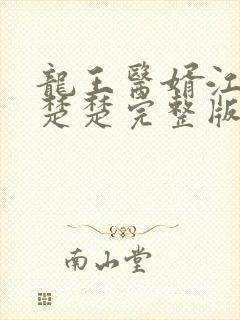 龍王醫婿江
楚楚完整版
南山堂